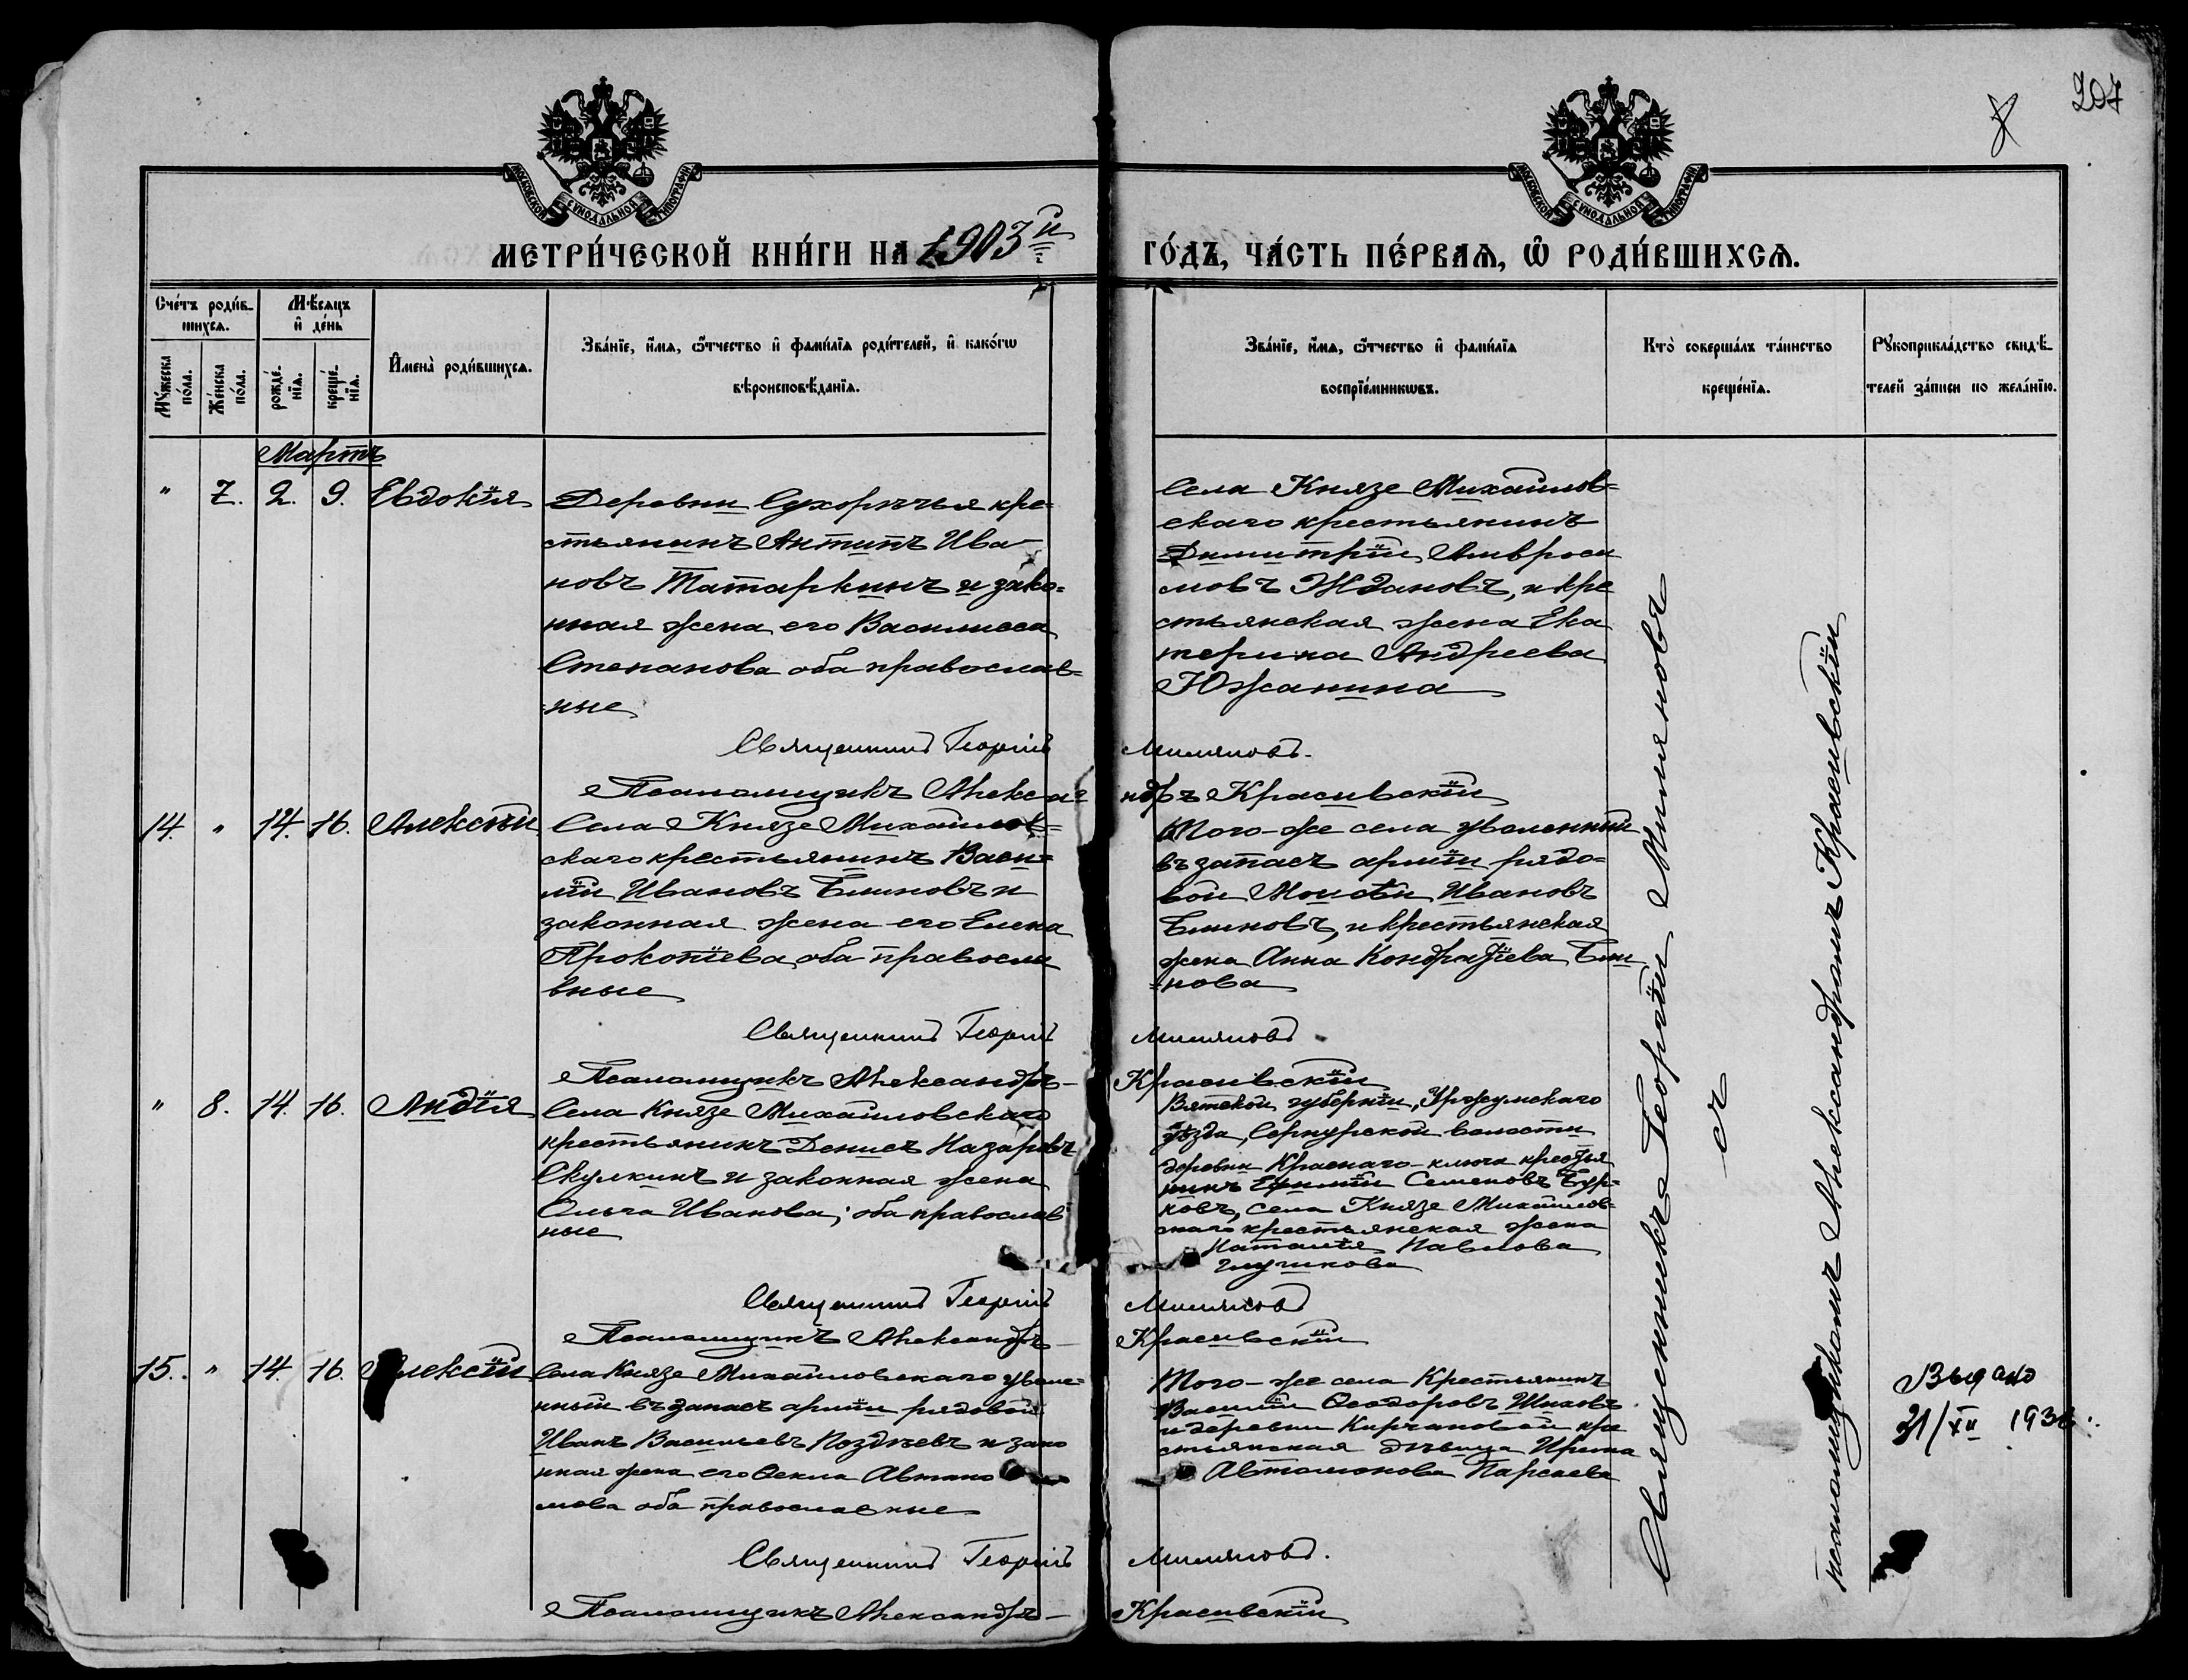 207
МОСКОВСКОЙ СѴНОДАЛЬНОЙ ТИПОГРАФІИ
МОСКОВСКОЙ СѴНОДАЛЬНОЙ ТИПОГРАФІИ
МЕТРИ́ЧЕСКОЙ КНИ́ГИ НА 1903й ГО́ДЪ, ЧА́СТЬ ПЕ́РВАѦ, Ѽ РОДИ́ВШИХСѦ.
Сче́тъ роди́в-
шихсѧ.
Мꙋ́жеска по́ла.
Же́нска по́ла.
Мѣ́сѧцъ и҆ де́нь
рожде́-нїѧ.
креще́-нїѧ.
И҆мена̀ роди́вшихсѧ.
Зва́нїе, и҆́мѧ, ѻ҆́тчество и҆ фами́лїѧ роди́телей, и҆ како́гѡ
вѣроисповѣ́данїѧ.
Зва́нїе, и҆́мѧ, ѻ҆́тчество и҆ фами́лїѧ
воспрїе́мникѡвъ.
Кто̀ соверша́лъ та́инство
креще́нїѧ.
Рꙋкоприкла́дство свидѣ́-
телей за́писи по жела́нїю.
Мартъ
" 7. 2. 9. Евдокія
Деревни Сухоречья кре-
стьянинъ Антипъ Ива-
новъ Татаркинъ и зако-
нная жена его Василисса
Степанова оба православ-
ные
Села Князе Михайлов-
скаго крестьянинъ
Димитрій Амвроси
мовъ Ждановъ, и кре
стьянская жена Ека
терина Андреева
Южанина
Священникъ Георгій Миляновъ.
Псаломщикъ Александръ Красивскій
14. " 14. 16. Алексѣй
Села Князе Михайлов-
скаго крестьянинъ Васи-
лій Ивановъ Блиновъ и
законная жена его Елена
Прокопіева, оба правосла
вные
Того-же села уволенный
въ запасъ арміи рядо-
вой Моисѣй Ивановъ
Блиновъ, и крестьянская
жена Анна Кондратіева Бли
-нова
Священникъ Георгій Миляновъ
Псаломщикъ Александръ- Красивскій
" 8. 14. 16. Лидія
Села Князе Михайловскаго
крестьянинъ Денисъ Назаровъ
Скулкинъ и законная жена
Ольга Иванова; оба православ
ные
Вятской губерніи, Уржумскаго
уѣзда, Сернурской волости
деревни Краснаго-ключа крестья
нинъ Ефимій Семеновъ Бур-
ковъ, села Князе Михайлов-
скаго крестьянская жена
Наталія Павлова
Глушкова
Священникъ Георгій Миляновъ
Псаломщикъ Александръ- Красивскій
15. " 14 16. Алексій
Села Князе Михайловскаго уволе-
нный въ запасъ арміи рядовой
Иванъ Васильевъ Поздѣевъ и зако
нная жена его Ѳекла Автано
мова оба православные
Того-же села Крестьянинъ
Василій Ѳеодоровъ Шиховъ
и деревни Кирчановой кре
стьянская дѣвица Ирина
Автомонова
Священникъ Георгій Миляновъ.
Псаломщикъ Александръ- Красивскій
Священникъ Георгій Миляновъ
съ
псаломщикомъ Александромъ Красивскій
Выдано
31/XII 193